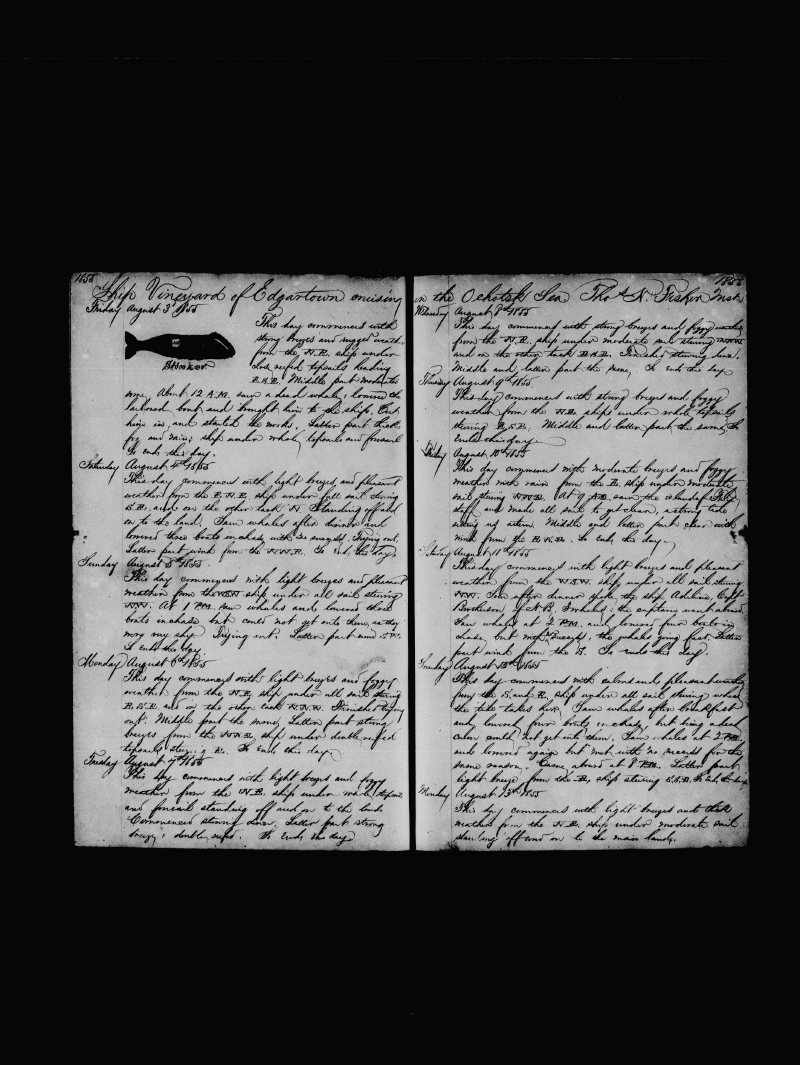 1855
Ship Vineyard of Edgartown cruising
Friday August 3d 1855
This day commences with
strong breezes and rugged weath
from the N.E. ship under
close reefed topsails heading
E.S.E. Middle part moderate
more. About 12 A.M. saw a dead whale; lowered the
larboard boat and brought him to the ship. Cut
him in, and started the works. Latter part thick
fog and rain; ship under whole topsails and foresail
So ends this day.
Stinker
Saturday August 4th 1855
This day commences with light breezes and pleasant
weather from the E.N.E. ship under full sail steering
S.E. and on the other tack N. Standing off and
on to the land. Saw whales after dinner and
lowered three boats in chase with no success. Trying out.
Latter part wind from the N.N.E. So ends this day
Sunday August 5th 1855
This day commences with light breezes and pleasant
weather from the ship under all sail steering
At 1 P.M. saw whales and lowered three
boats in chase but could not get onto them, as they
very shy Trying out. Latter part wind
So ends this day.
Monday August 6th 1855
This day commences with light breezes and foggy
weather from the N.E. ship under all sail steering
E.S.E. and on the other tack N.N.W. Finished trying
out. Middle part the same, Latter part strong
breezes from the ship under double reefed
topsails steering E. So ends this day
Tuesday August 7th 1855
This day commences with light breezes and foggy
weather from the N.E. ship under whole topsails
and foresail standing off and on to the land.
Commenced stowing down, Latter part strong
breezes; double reefs. So ends this day
1855
in the Ochotsk Sea Thos N. Fisher Mstr
Wednesday August 8th 1855
This day commences with strong breezes and foggy weather
from the N.E. ship under moderate sail steering
and on the other tack E.S.E. Finished stowing down.
Middle and latter part the same, So ends this day
Thursday August 9th 1855
This day commences with strong breezes and foggy
weather from the N.E. ship under whole topsails
steering E.S.E. Middle and latter part the same, So
ends this day
Friday August 10th 1855
This day commences with moderate breezes and foggy
weather with rain from the E. ship under moderate
sail steering At 9 A.M. saw the island of
and made all sail to get clear, a strong tide
setting us Middle and latter part clear with
wind from the So ends this day.
Saturday August 11th 1855
This day commences with light breezes and pleasant
weather from the ship under all sail steering
after dinner spoke the ship Adeline, Capt
of N.B. whales; the captain went aboard
Saw whales at 2 P.M. and lowered four boats in
chase, but no success, the whales going fast. Latter
part wind from the So ends this day.
Sunday August 12th 1855
This day commences with calms and pleasant weather
from the ship under all sail steering where
the tide takes her. Saw whales after breakfast
and lowered four boats in chase but being a dead
calm could not get onto them. Saw whales at 2 P.M.
and lowered again but met with no success for the
same reason. Came aboard at 8 P.M. Latter part
light breeze from the ship steering So ends this day
Monday August 13th 1855
This day commences with light breezes and thick
weather from the N.E. ship under moderate sail
standing off and on to the main land.